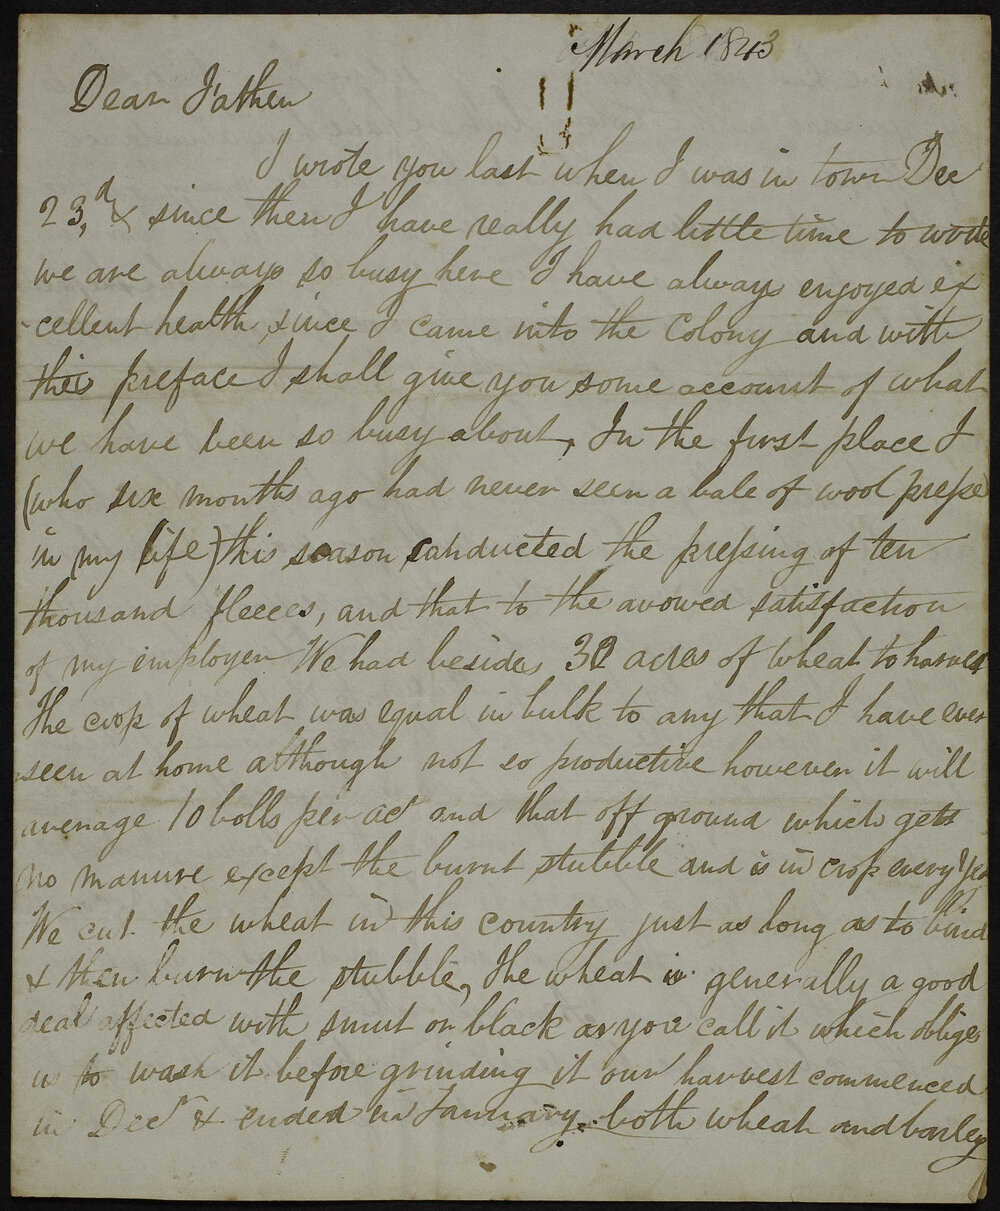 March 1843
Dear Father
I wrote you last when I was in town Dec
23,d & since then I have really had little time to write
we are always so busy here I have always enjoyed ex
cellent health since I came into the Colony and with
this preface I shall give you some account of what
we have been so busy about, In the first place I
(who six months ago had never seen a bale of wool presse
in my life) this season conducted the pressing of ten
thousand fleeces, and that to the avowed satisfaction
of my employer We had besides 32 acres of wheat to harvest
The crop of wheat was equal in bulk to any that I have ever
seen at home although not so productive however it will
average 10 bolls per acr and that off ground which gets
no manure except the burnt stubble and is in crop every Year
We cut the wheat in this country just as long as to bind
& then burn the stubble, The wheat is generally a good
deal affected with smut or black as you call it which obliges
us to wash it before grinding it our harvest commenced
in Decr & ended in January both wheat and barley